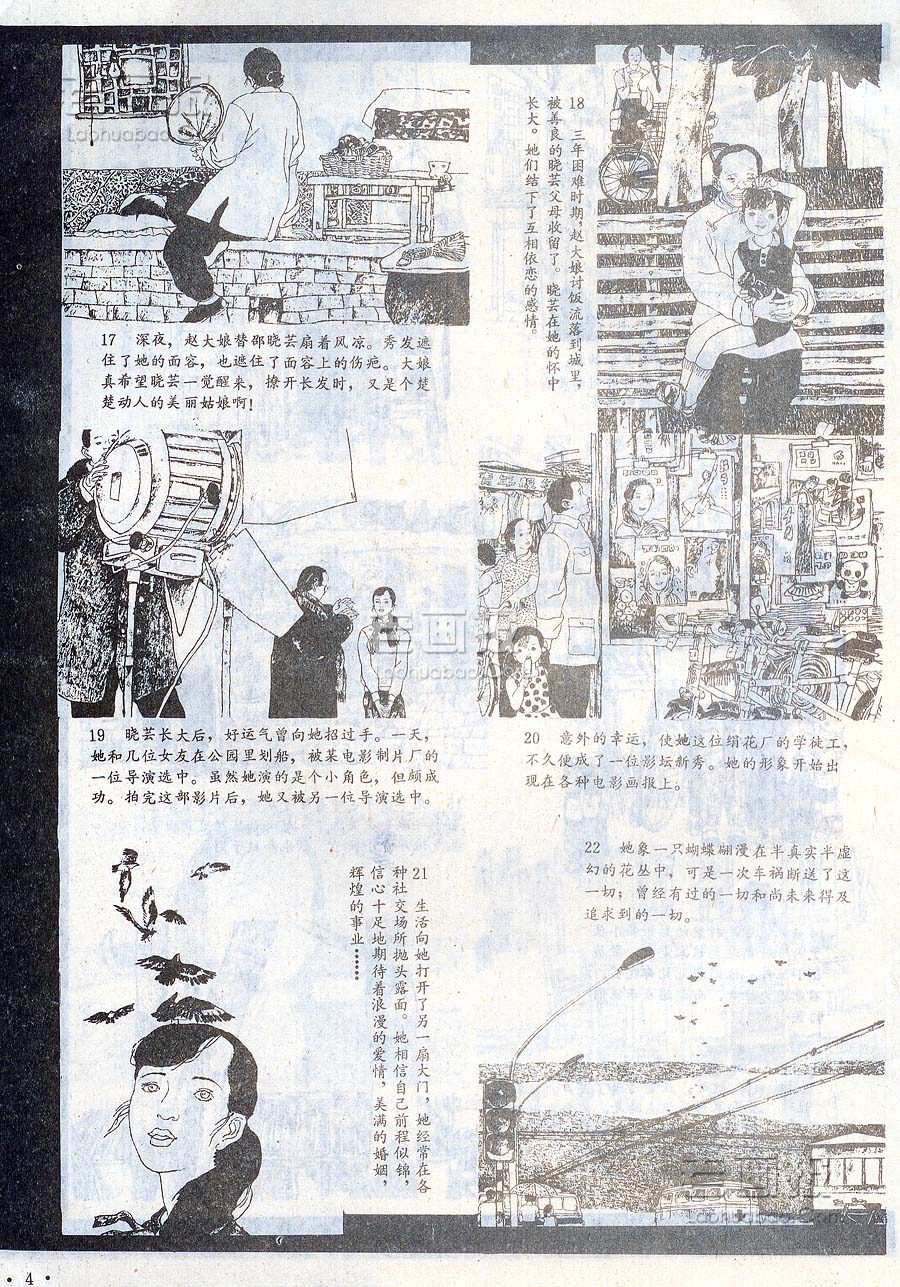 17 深夜，赵大娘替邵晓芸扇着风凉。秀发遮
住了她的面容，也遮住了面容上的伤疤。大娘
真希望晓芸一觉醒来，撩开长发时，又是个楚
楚动人的美丽姑娘啊！
18 三年困难时期，赵大娘讨饭流落到城里，
被善良的晓芸父母收留了。晓芸在她的怀中
长大。她们结下了互相依恋的感情。
19 晓芸长大后，好运气曾向她招过手。一天，
她和几位女友在公园里划船，被某电影制片厂的
一位导演选中。虽然她演的是个小角色，但颇成
功。拍完这部影片后，她又被另一位导演选中。
20 意外的幸运，使她这位绢花厂的学徒工，
不久便成了一位影坛新秀。她的形象开始出
现在各种电影画报上。
21 生活向她打开了另一扇大门，她经常在各
种社交场所抛头露面。她相信自己前程似锦，
信心十足地期待着浪漫的爱情，美满的婚姻，
辉煌的事业……
22 她象一只蝴蝶翩漫在半真实半虚
幻的花丛中，可是一次车祸断送了这
一切；曾经有过的一切和尚未来得及
追求到的一切。
老画报
Laohuabao.com
老画报
Laohuabao.com
老画报
Laohuabao.com
· 4 ·